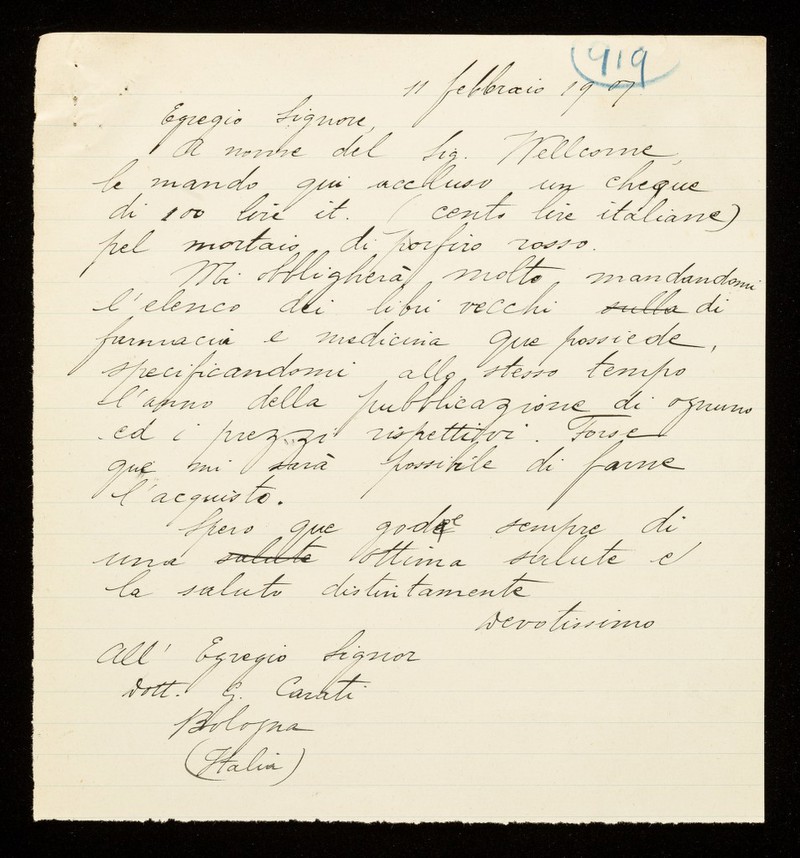 919
11 febbraio 1907
Egregio Signore,
A nome del Sig. Wellcome,
le mando qui accluso un cheque
di 100 lire it. (cento lire italiane)
pel mortaio di porfiro rosso.
Mi obbligherà molto mandandomi
l'elenco dei libri vecchi sulla di
farmacia e medicina que possiede,
specificandomi allo stesso tempo
l'anno della pubblicazione di ognuno
ed i prezzi rispettivi. Forse
que mi sarà possibile di farne
l'acquisto.
Spero que gode sempre di
una salute ottima salute e
la saluto distintamente
Devotissimo
All' Egregio Signor
Dott. G. Carati
Bologna
(Italia)